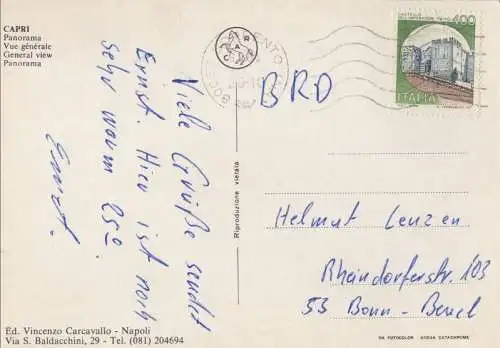 CAPRI
Panorama
Vue générale
General view
Panorama
Viele Grüße sendet
Ernst. Hier ist noch
sehr warm 25°.
Ernst.
Riproduzione vietata
400
ITALIA
BRD
Helmut Lenzen
Rheindorferstr. 103
53 Bonn-Beuel
Ed. Vincenzo Carcavallo - Napoli
Via S. Baldacchini, 29 - Tel. (081) 204694